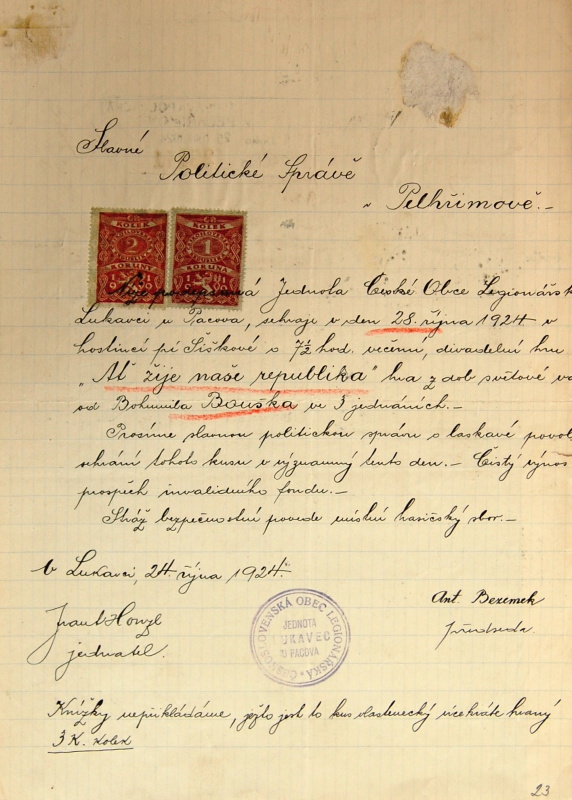 Slavné
Politické Správě
v Pelhřimově.-
KOLEK
2
KORUNY
KOLEK
1
KORUNA
Níže podepsaná Jednota České Obce Legionářsk
Lukavci u Pacova, sehraje v den 28. října 1924 v
hostinci pí Šiškové o 7½ hod. večerní, divadelní hru
„Ať žije naše republika" hra z dob světové vá
od Bohumila Bouška ve 3 jednáních.-
Prosíme slavnou politickou správu o laskavé povol
sehrání tohoto kusu v významný tento den.- Čistý výnos
prospěch invalidního fondu.-
Stráž bezpečnostní povede místní hasičský sbor.-
V Lukavci, 24. října 1924.
Ant. Bezemek
předseda.
jednatel.
ČESKOSLOVENSKÁ OBEC LEGIONÁŘSKÁ
JEDNOTA
LUKAVEC
U PACOVA
Knížky nepřikládáme, ježto jest to kus vlastenecký vícekráte hraný
3 K. kolek
23